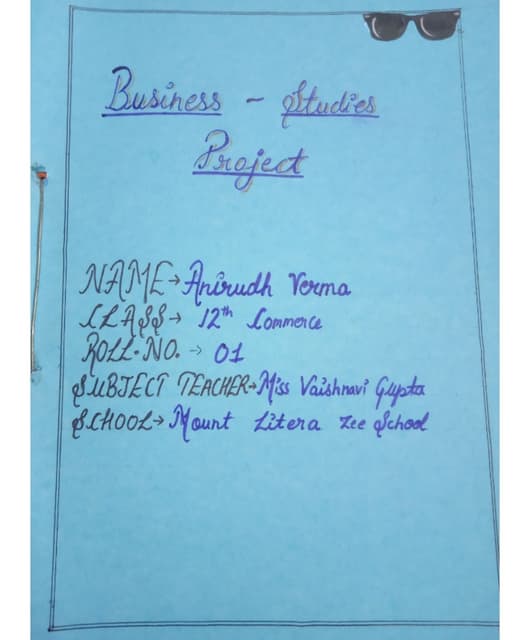 Business - Studies
Project
NAME→Anirudh Verma
CLASS→ 12th Commerce
ROLL.NO. → 01
SUBJECT TEACHER→Miss Vaishnavi Gupta
SCHOOL→ Mount Litera Zee School